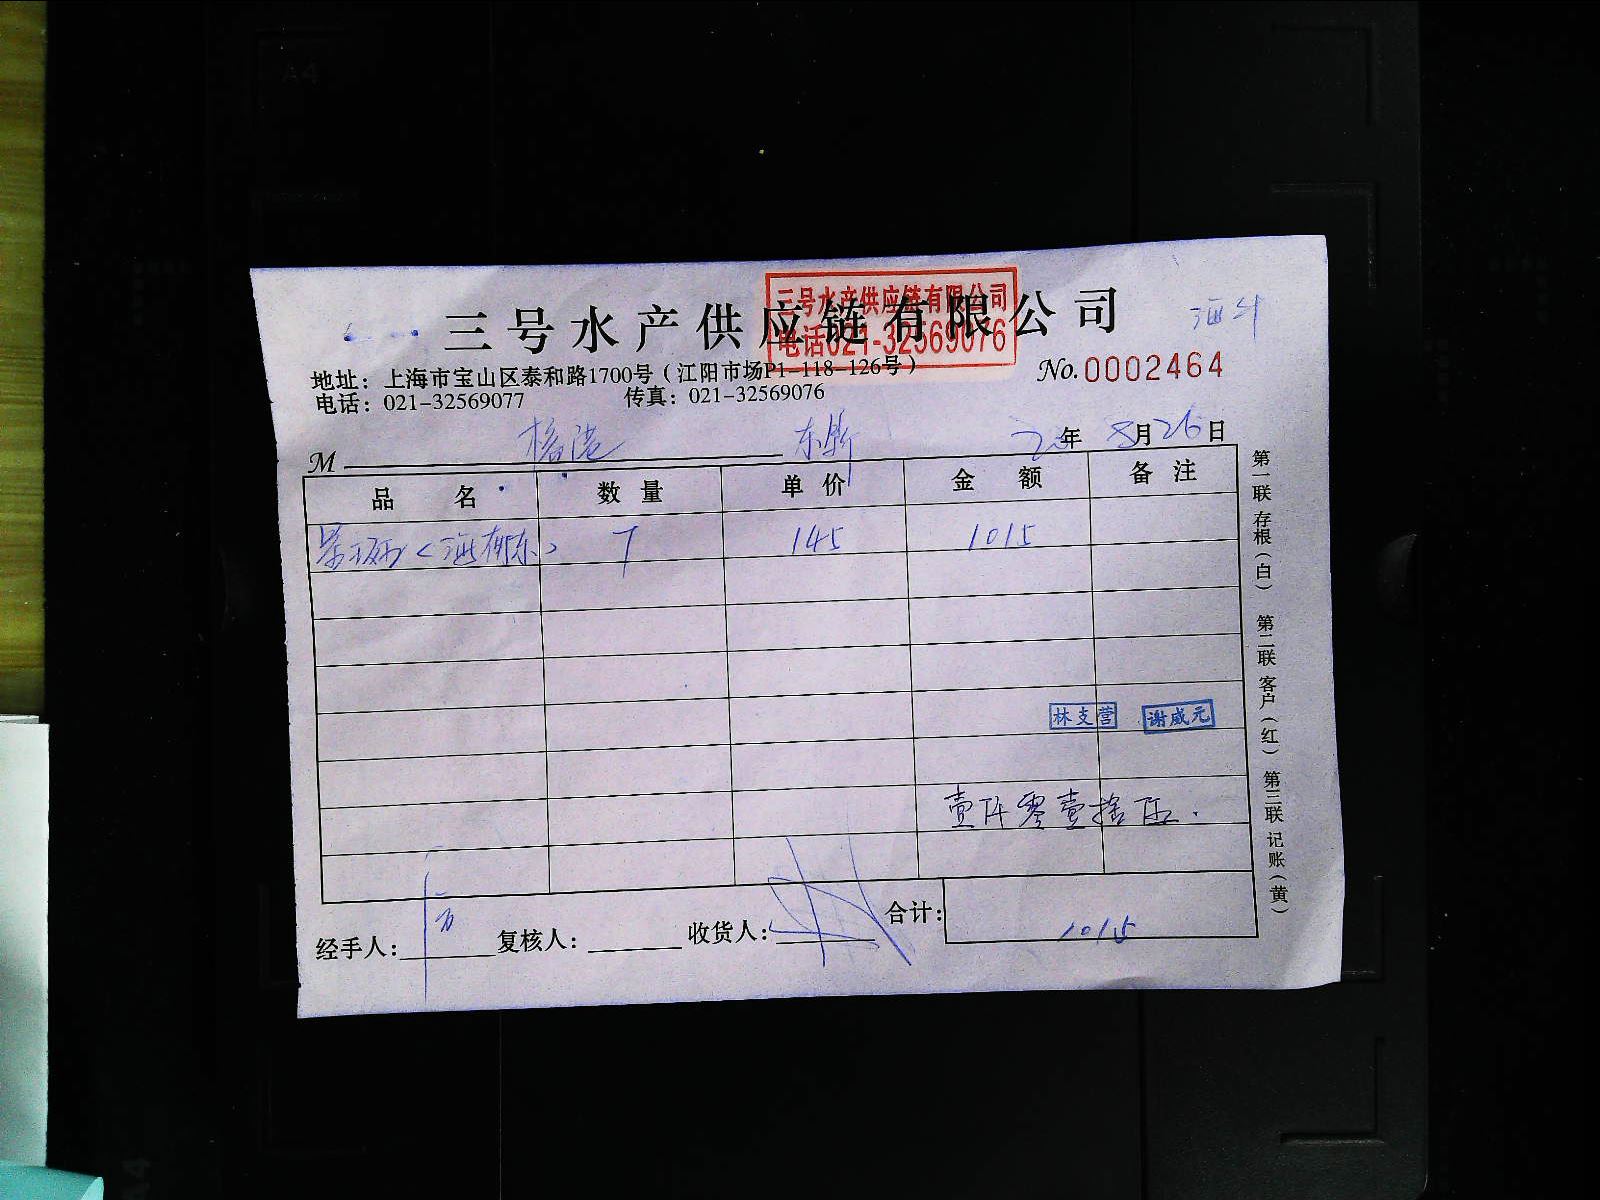 三号水产供应链有限公司
三号水产供应链有限公司
电话021-32569076
地址：上海市宝山区泰和路1700号（江阳市场P1-118-126号）
No.0002464
电话：021-32569077 传真：021-32569076
M 年 8月26日
品名 数量 单价 金额 备注
7 145 1015
林支营 谢威元
壹仟零壹拾伍.
经手人： 复核人： 收货人： 合计： 1015
第一联 存根（白） 第二联 客户（红） 第三联 记账（黄）